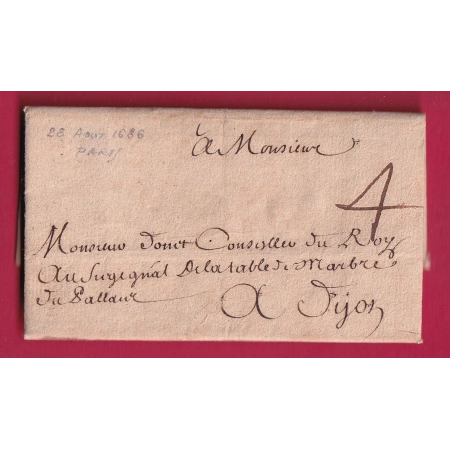 28 Aout 1686
PARIS
A Monsieur
4
Monsieur Donet Conseiller du Roy
Au Siege gñal De la table de Marbre
du Pallais
A Dijon